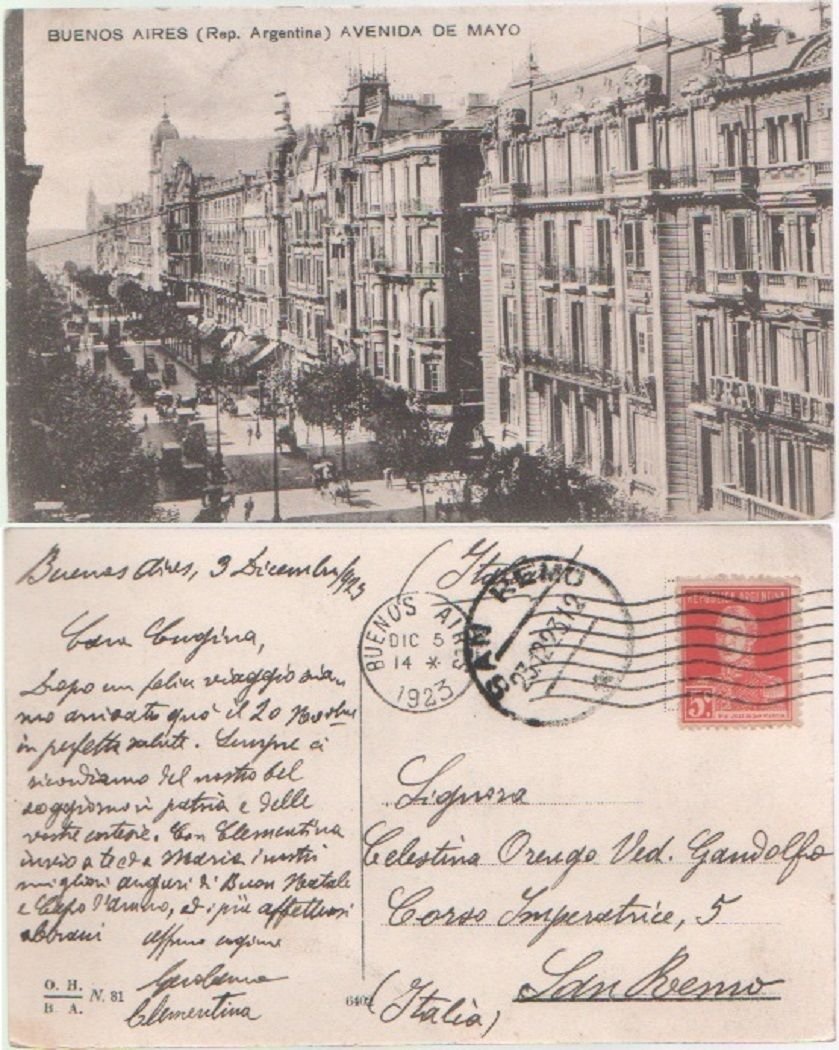 BUENOS AIRES (Rep. Argentina) AVENIDA DE MAYO
Buenos Aires, 3 Dicembre 1923
Cara Cugina,
Dopo un felice viaggio sia-
mo arrivati quà il 20 Novbre
in perfetta salute. Sempre ci
ricordiamo del nostro bel
soggiorno in patria e delle
vostre cortesie. Con Clementina
invio a te ed a Maria i nostri
migliori auguri di Buon Natale
e Capo d'anno, ed i più affettuosi
abbracci
cugino
Clementina
O. H.
B. A.
N. 81
(Italia)
BUENOS AIRES
DIC 5
14 *
1923
SAN REMO
REPUBLICA ARGENTINA
5c
Signora
Celestina Orengo Ved. Gandolfo
Corso Imperatrice, 5
San Remo
(Italia)